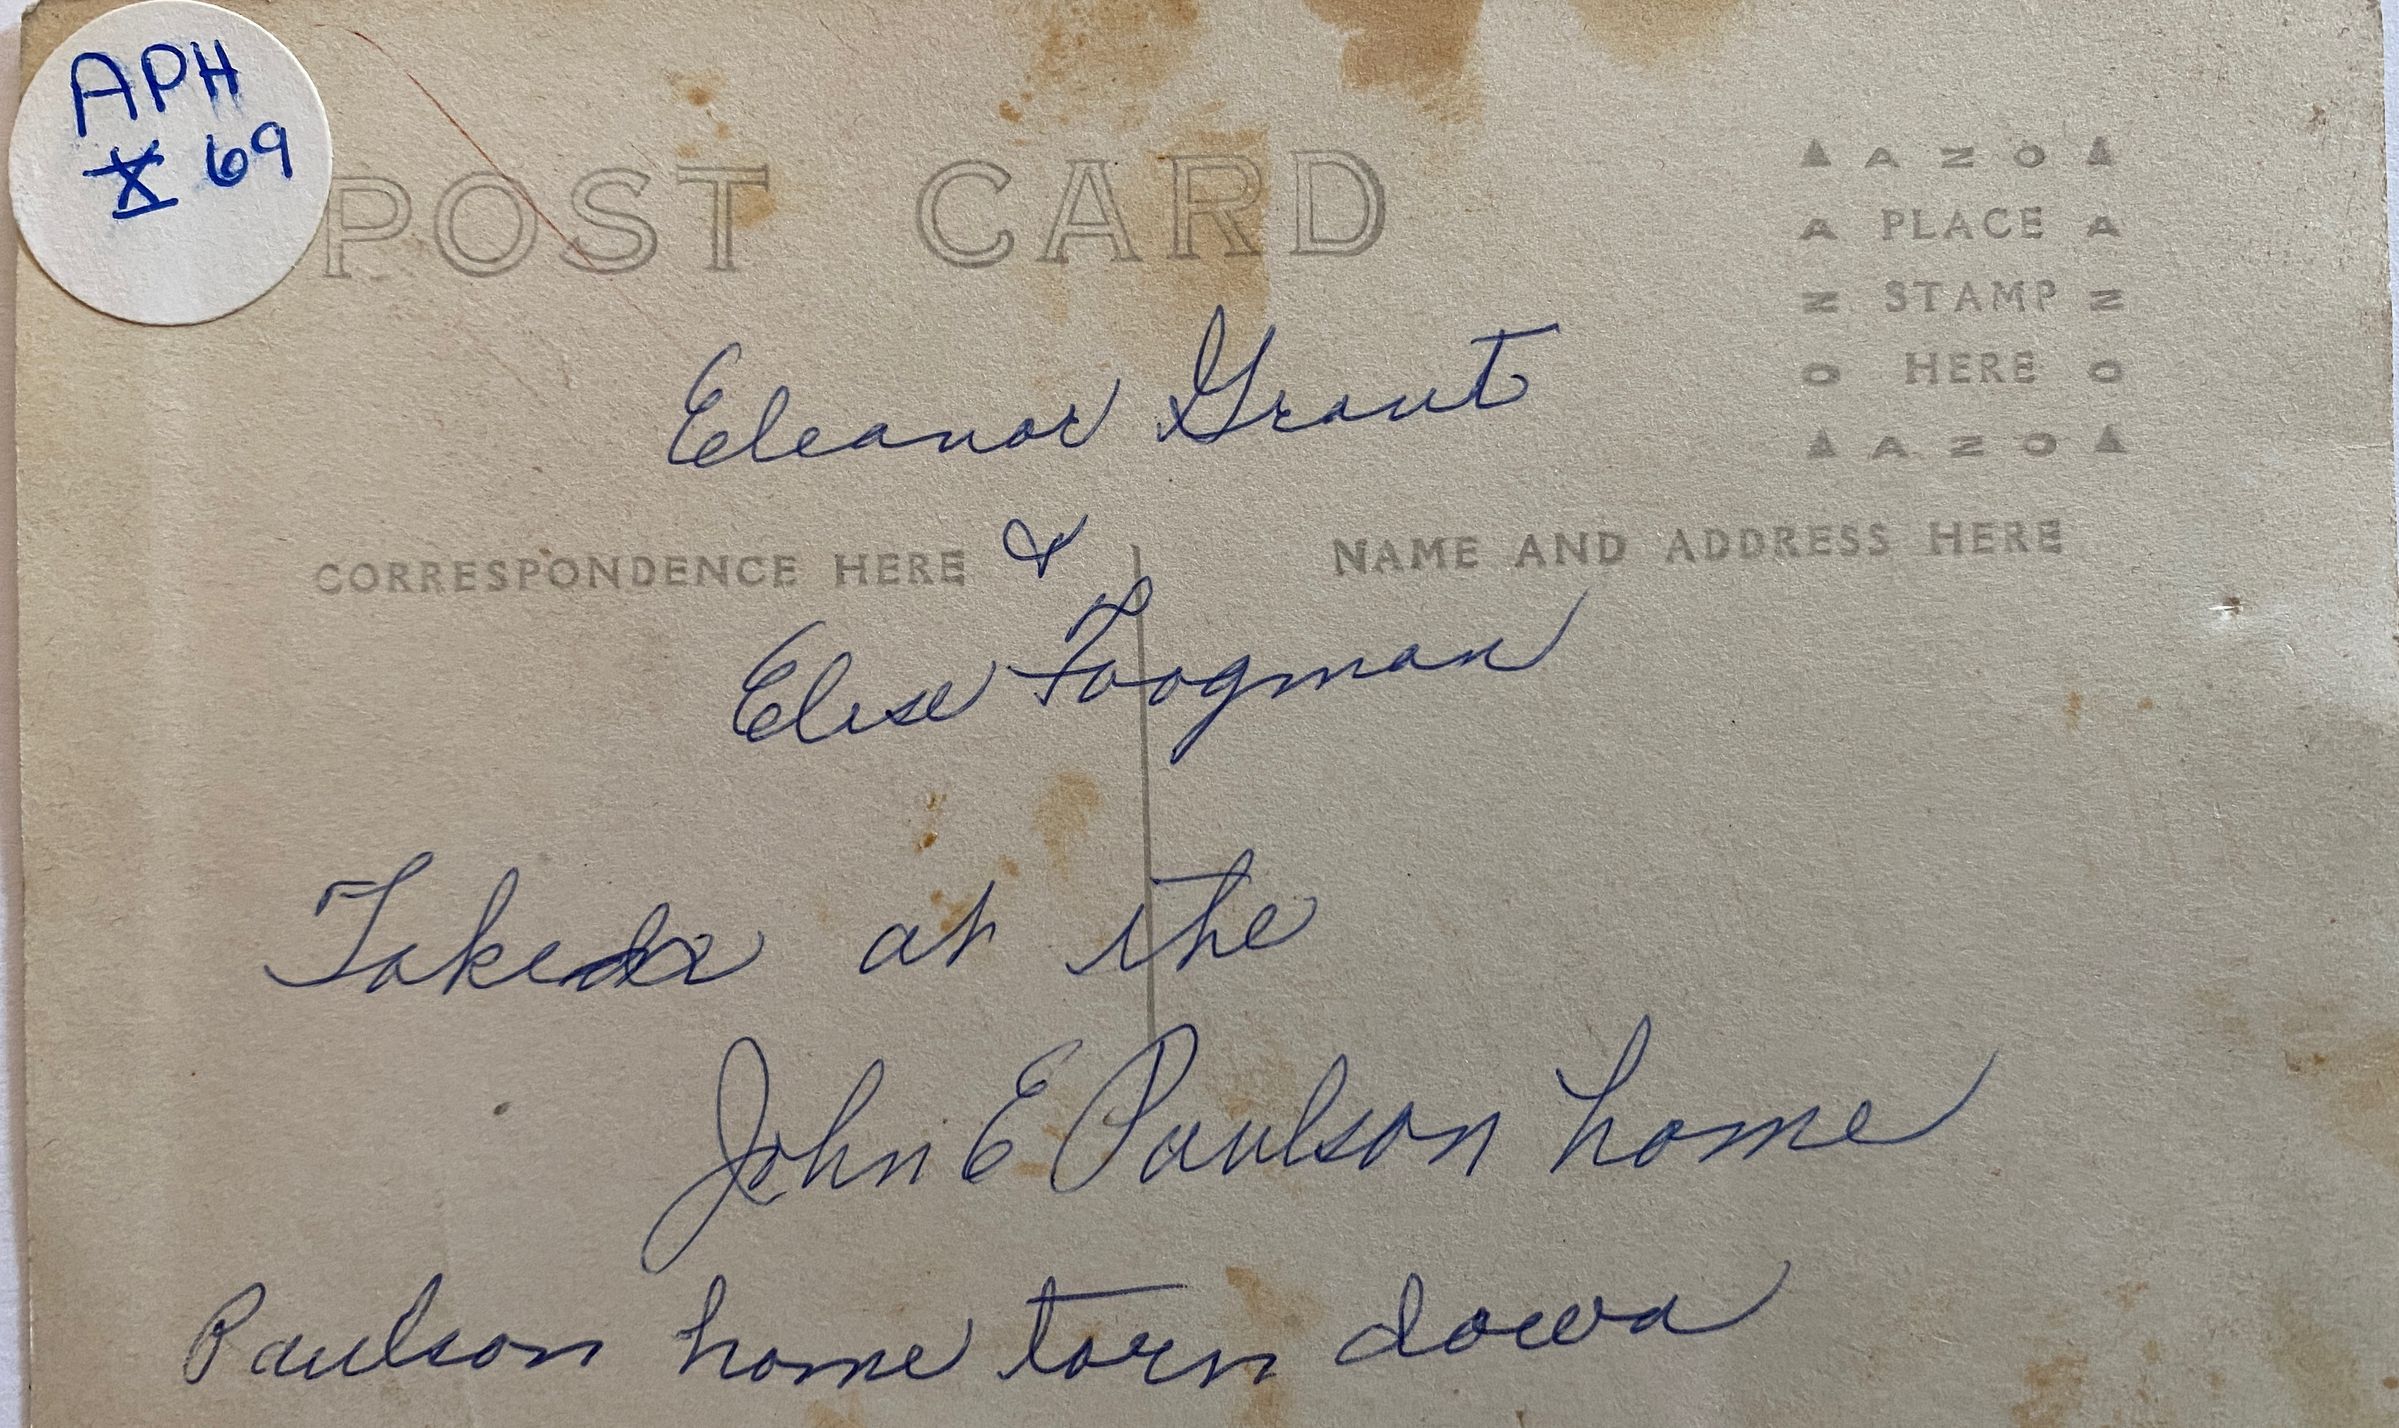 APH
X 69
POST CARD
▲ A Z O ▲
A PLACE A
N STAMP N
O HERE O
▲ A Z O ▲
Eleanor Grant
&
CORRESPONDENCE HERE
NAME AND ADDRESS HERE
Elise Foogman
Taken at the
John E Paulson home
Paulson home torn down